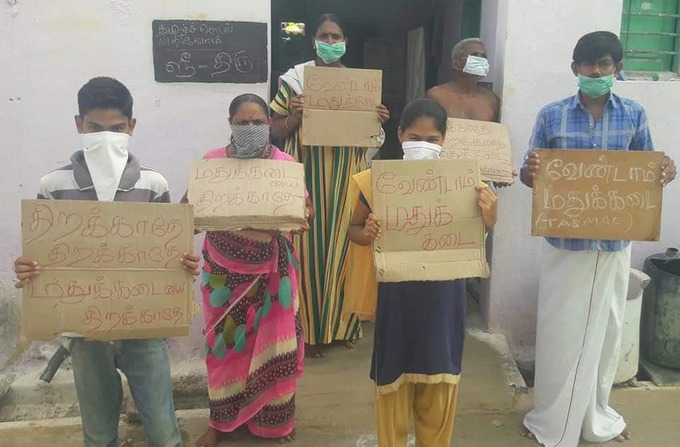 தமிழ்ச்சொல்
அறிவோம்
ஸ்ரீ - திரு
வேண்டாம்
மதுக்கடை
திறக்காதே
திறக்காதே
மதுக்கடையை
திறக்காதே
மதுக்கடையை
திறக்காதே
வேண்டாம்
மதுக்
கடை
வேண்டாம்
மதுக்கடை
(TASMAC)